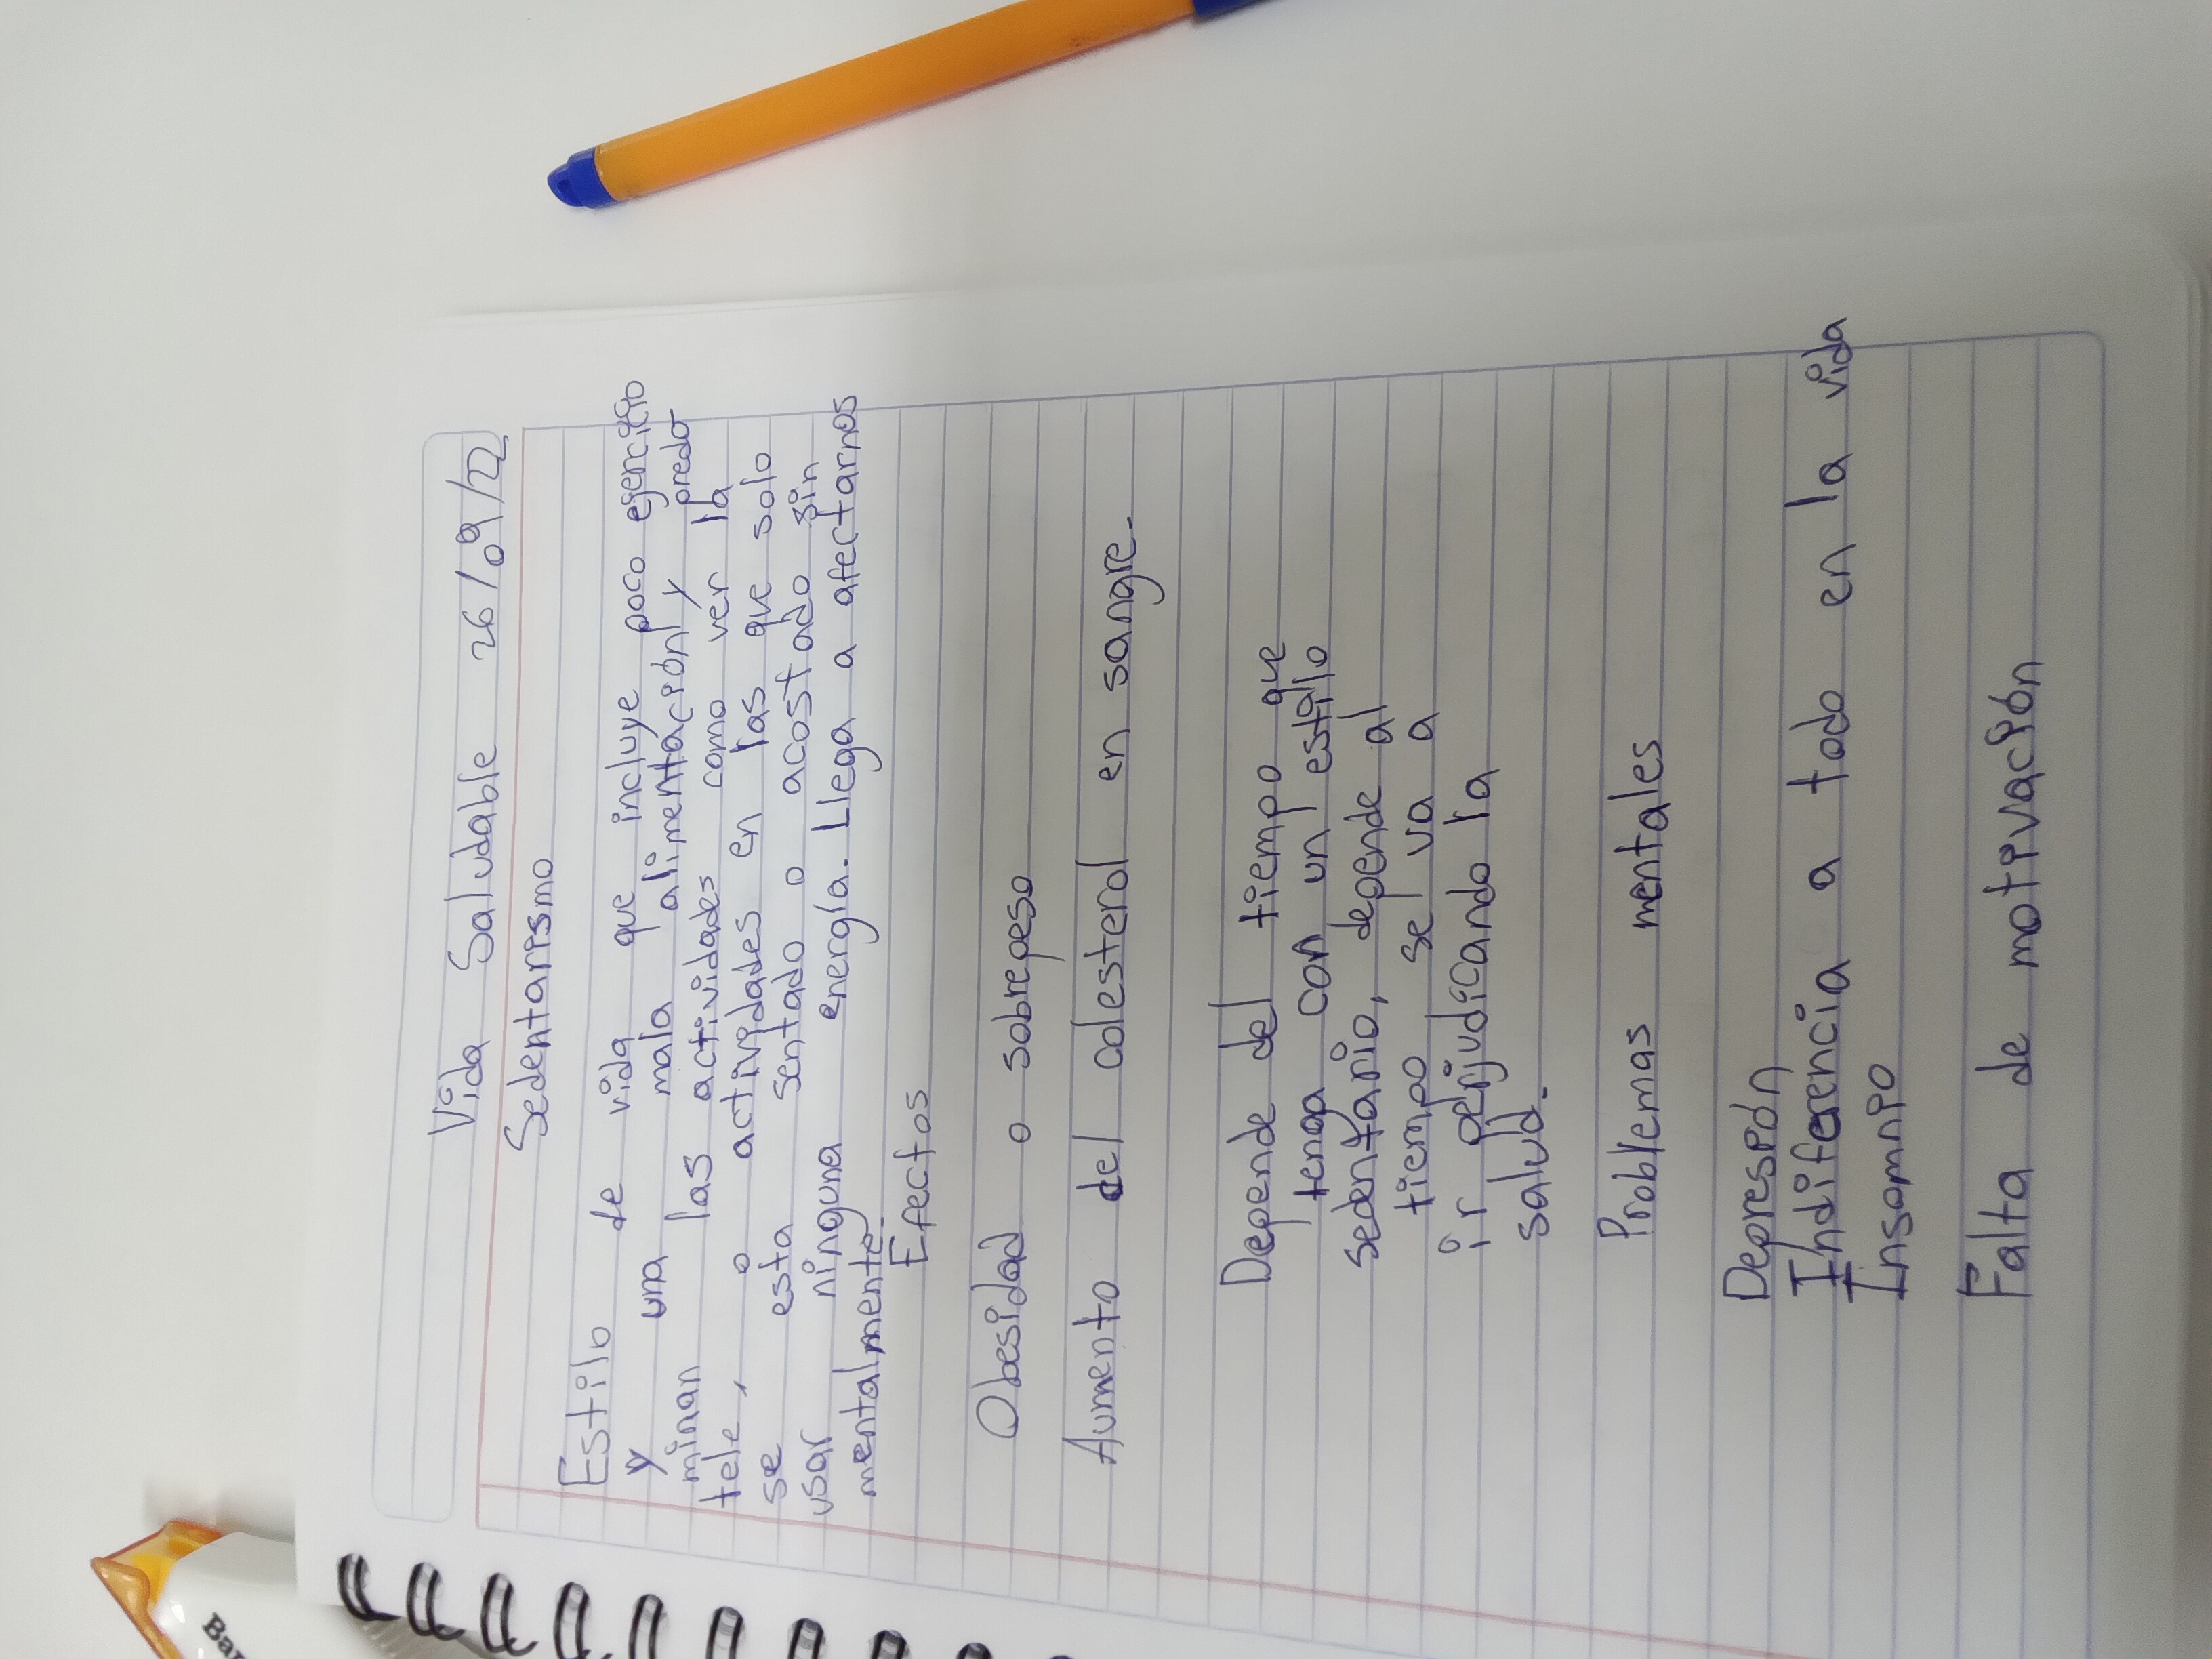 Vida Saludable 26/09/22
Sedentarismo
Estilo de vida que incluye poco ejercicio
y una mala alimentación y predo
minan las actividades como ver la
tele, o actividades en las que solo
se esta sentado o acostado sin
usar ninguna energía. Llega a afectarnos
mentalmente.
Efectos
Obesidad o sobrepeso
Aumento del colesterol en sangre.
Depende del tiempo que
tenga con un estilo
sedentario, depende al
tiempo se va a
ir perjudicando la
salud.
Problemas mentales
Depresión
Indiferencia a todo en la vida
Insomnio
Falta de motivación
Bar